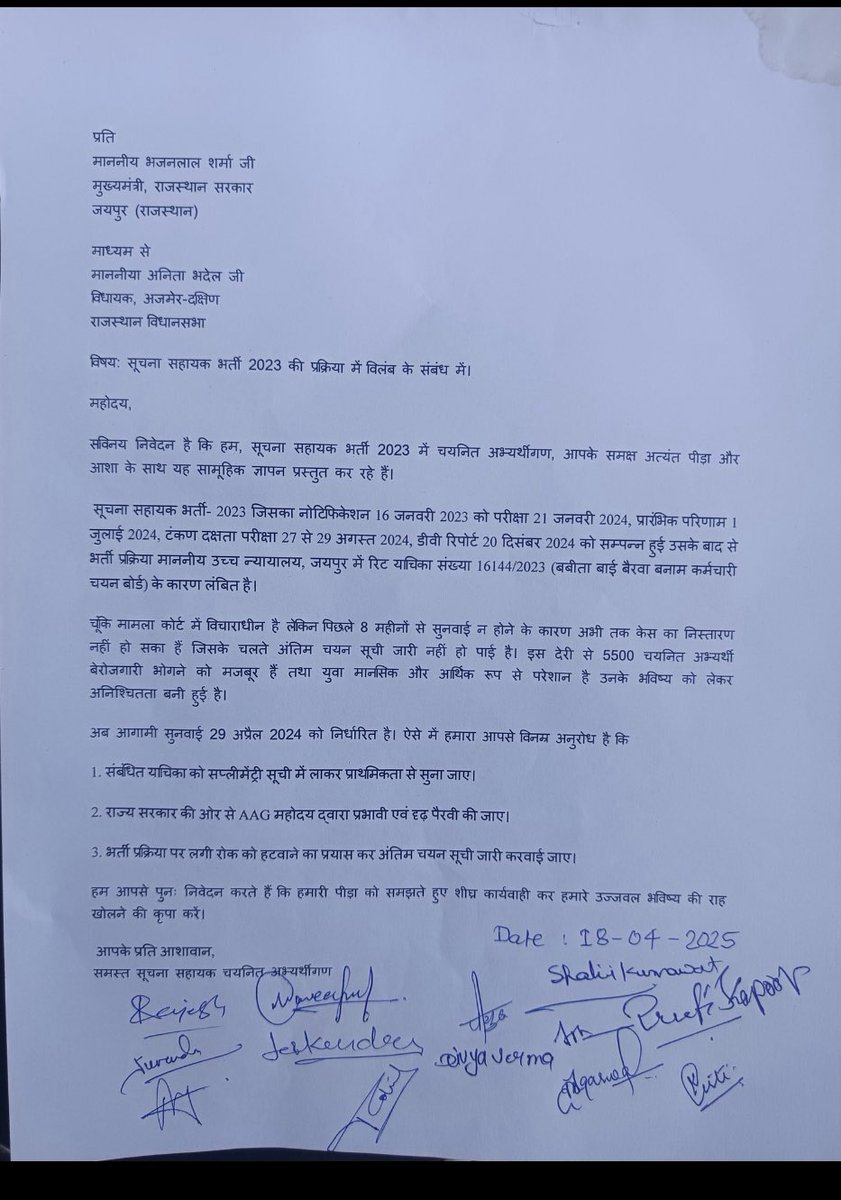 प्रति
माननीय भजनलाल शर्मा जी
मुख्यमंत्री, राजस्थान सरकार
जयपुर (राजस्थान)
माध्यम से
माननीया अनिता भदेल जी
विधायक, अजमेर-दक्षिण
राजस्थान विधानसभा
विषय: सूचना सहायक भर्ती 2023 की प्रक्रिया में विलंब के संबंध में।
महोदय,
सविनय निवेदन है कि हम, सूचना सहायक भर्ती 2023 में चयनित अभ्यर्थीगण, आपके समक्ष अत्यंत पीड़ा और
आशा के साथ यह सामूहिक ज्ञापन प्रस्तुत कर रहे हैं।
सूचना सहायक भर्ती- 2023 जिसका नोटिफिकेशन 16 जनवरी 2023 को परीक्षा 21 जनवरी 2024, प्रारंभिक परिणाम 1
जुलाई 2024, टंकण दक्षता परीक्षा 27 से 29 अगस्त 2024, डीवी रिपोर्ट 20 दिसंबर 2024 को सम्पन्न हुई उसके बाद से
भर्ती प्रक्रिया माननीय उच्च न्यायालय, जयपुर में रिट याचिका संख्या 16144/2023 (बबीता बाई बैरवा बनाम कर्मचारी
चयन बोर्ड) के कारण लंबित है।
चूंकि मामला कोर्ट में विचाराधीन है लेकिन पिछले 8 महीनों से सुनवाई न होने के कारण अभी तक केस का निस्तारण
नहीं हो सका हैं जिसके चलते अंतिम चयन सूची जारी नहीं हो पाई है। इस देरी से 5500 चयनित अभ्यर्थी
बेरोजगारी भोगने को मजबूर हैं तथा युवा मानसिक और आर्थिक रूप से परेशान है उनके भविष्य को लेकर
अनिश्चितता बनी हुई है।
अब आगामी सुनवाई 29 अप्रैल 2024 को निर्धारित है। ऐसे में हमारा आपसे विनम्र अनुरोध है कि
1. संबंधित याचिका को सप्लीमेंट्री सूची में लाकर प्राथमिकता से सुना जाए।
2. राज्य सरकार की ओर से AAG महोदय द्वारा प्रभावी एवं दृढ़ पैरवी की जाए।
3. भर्ती प्रक्रिया पर लगी रोक को हटवाने का प्रयास कर अंतिम चयन सूची जारी करवाई जाए।
हम आपसे पुनः निवेदन करते हैं कि हमारी पीड़ा को समझते हुए शीघ्र कार्यवाही कर हमारे उज्जवल भविष्य की राह
खोलने की कृपा करें।
Date : 18-04-2025
आपके प्रति आशावान,
समस्त सूचना सहायक चयनित अभ्यर्थीगण
Divya Verma